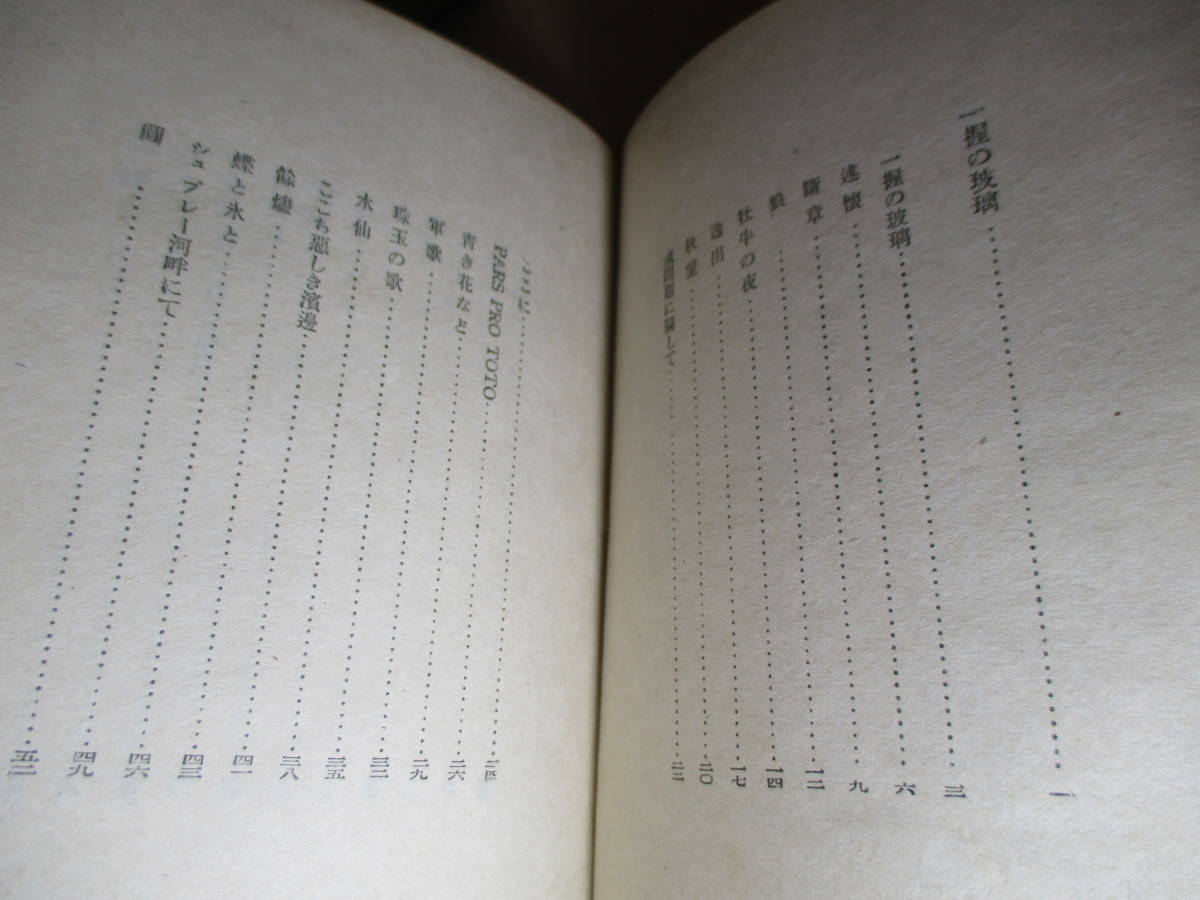 一握の玻璃……一
一握の玻璃……三
述懷……六
斷章……九
狼……一二
牡牛の夜……一四
逸出……一七
秋望……二〇
或問題に關して……二二
ここに……二四
PARS PRO TOTO……二六
靑き花など……二九
軍歌……三二
珠玉の歌……三五
水仙……三八
ここち惡しき濱邊……四一
餘燼……四三
蝶と氷と……四六
シュプレー河畔にて……四九
……五二